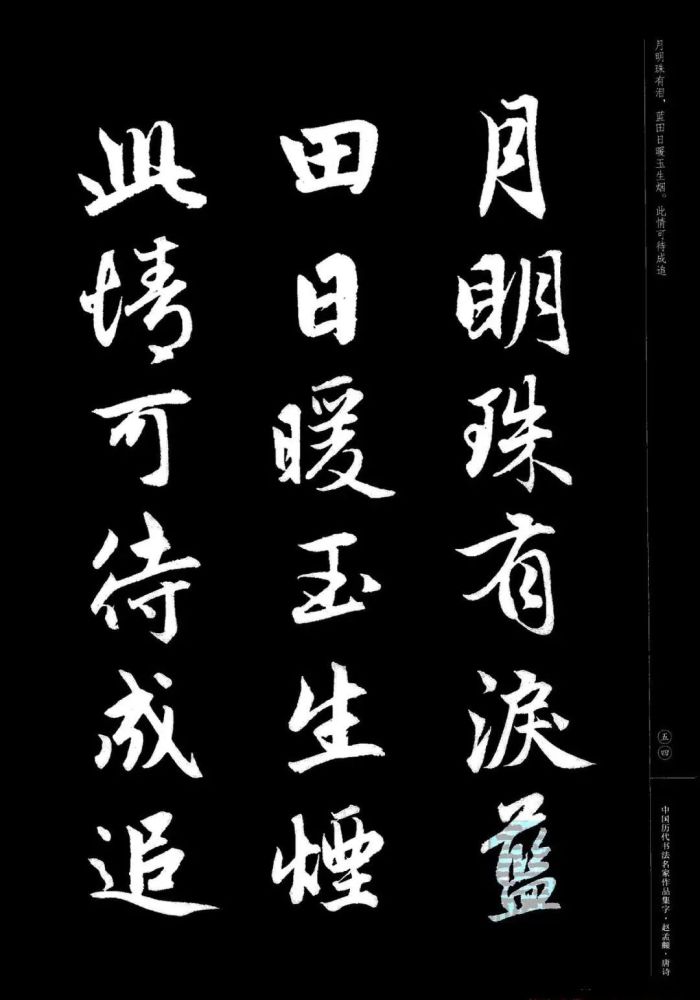 月明珠有泪，蓝田日暖玉生烟。此情可待成追
月明珠有淚藍
田日暖玉生煙
此情可待成追
五四
中国历代书法名家作品集字·赵孟頫·唐诗